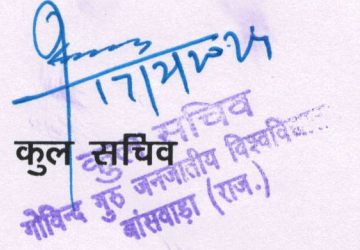 17/2/2025
कुल सचिव
कुल सचिव
गोविन्द गुरु जनजातीय विश्वविद्यालय
बांसवाड़ा (राज.)